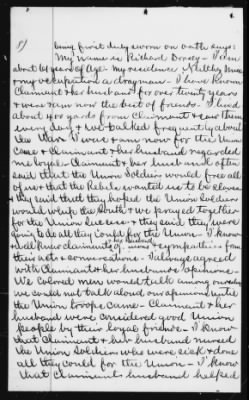 5)
being first duly sworn on oath says:
My name is Richard Dorsey - I am
about 61 years of Age - my residence Natchez Miss
& my occupation a drayman - I have known
Claimant & her husband for over twenty years
& were & am now the best of friends. I lived
about 400 yards from Claimant & saw them
every day & we talked frequently about
the War. I was & am now for the Union
cause & Claimant & her husband regarded
me loyal - Claimant & her husband often
said that the Union Soldiers would free all
of us & that the Rebels wanted us to be slaves
& they said that they hoped the Union Soldiers
would whip the South & we prayed together
for the Union success & they said they were
going to do all they could for the Union - I know
& well knew claimants & her husband views & sympathies from
their acts & conversations - I always agreed
with Claimant & her husbands opinions -
We Colored men would talk among ourselves
we could not talk about our opinions until
the Union troops came - Claimant & her
husband were considered good Union
people by their loyal friends - I know
that Claimant & her husband nursed
the Union Soldiers who were sick & done
all they could for the Union - I know
that Claimants husband helped